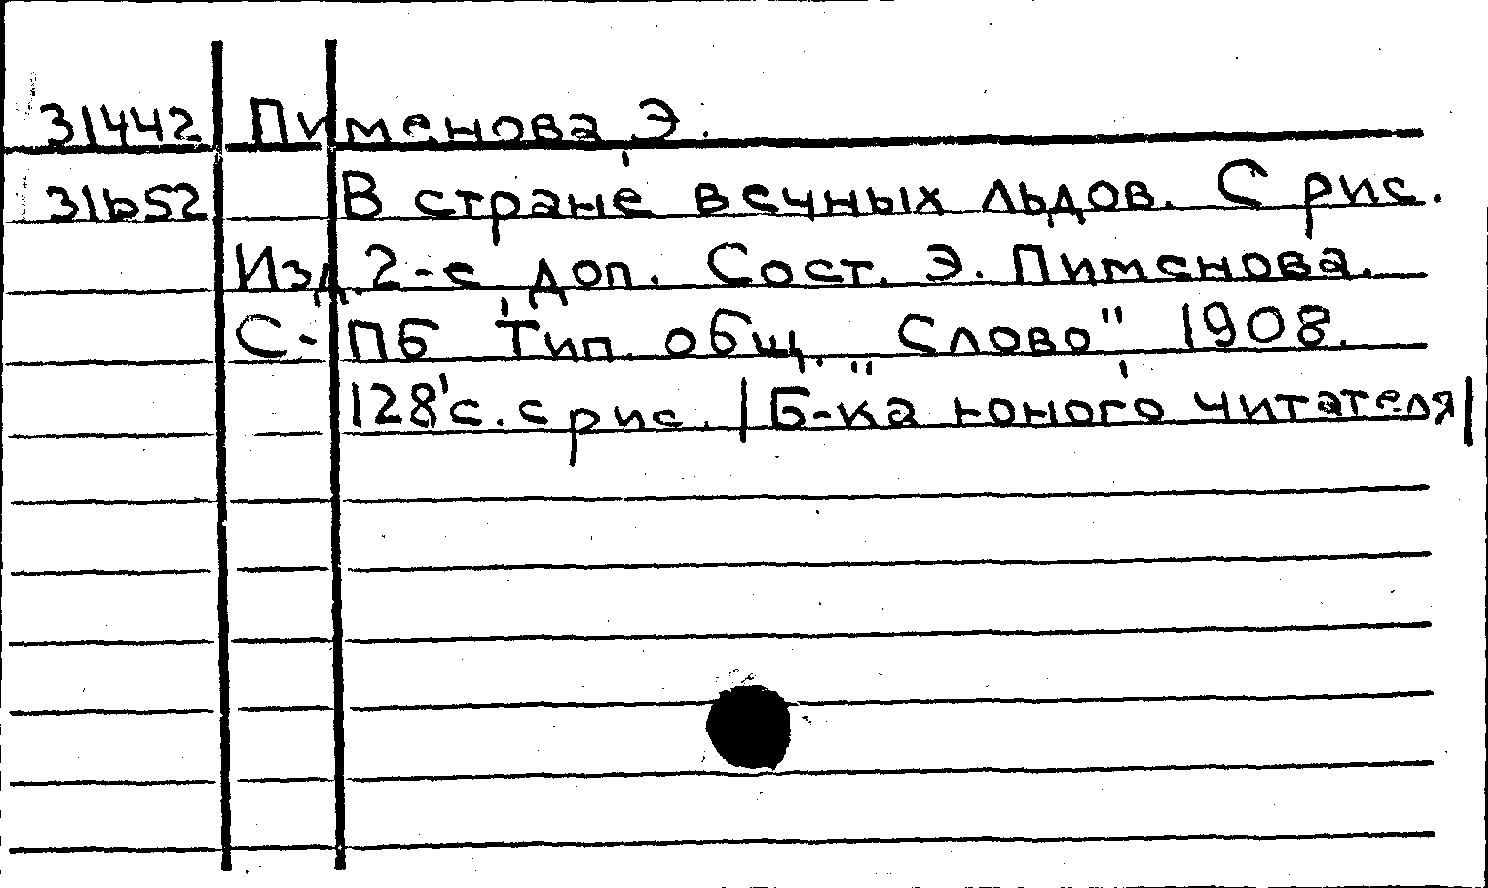 31442 Пименова Э.
31652 В стране вечных льдов. С рис.
Изд. 2-е, доп. Сост. Э. Пименова.
С-ПБ Тип. общ. "Слово" 1908.
128 с. с рис. |Б-ка юного читателя|